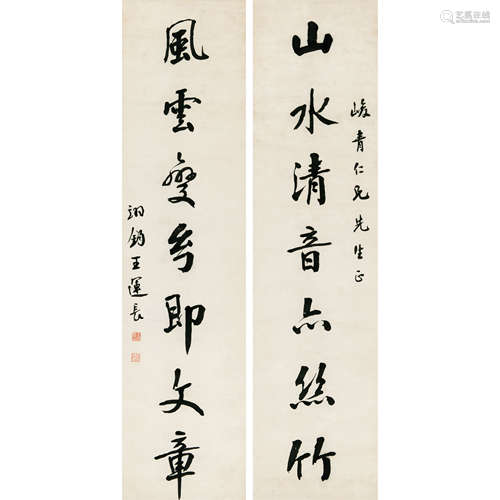 山水清音亦絲竹
峻青仁兄先生正
風雲變幻即文章
翊鈞王運長